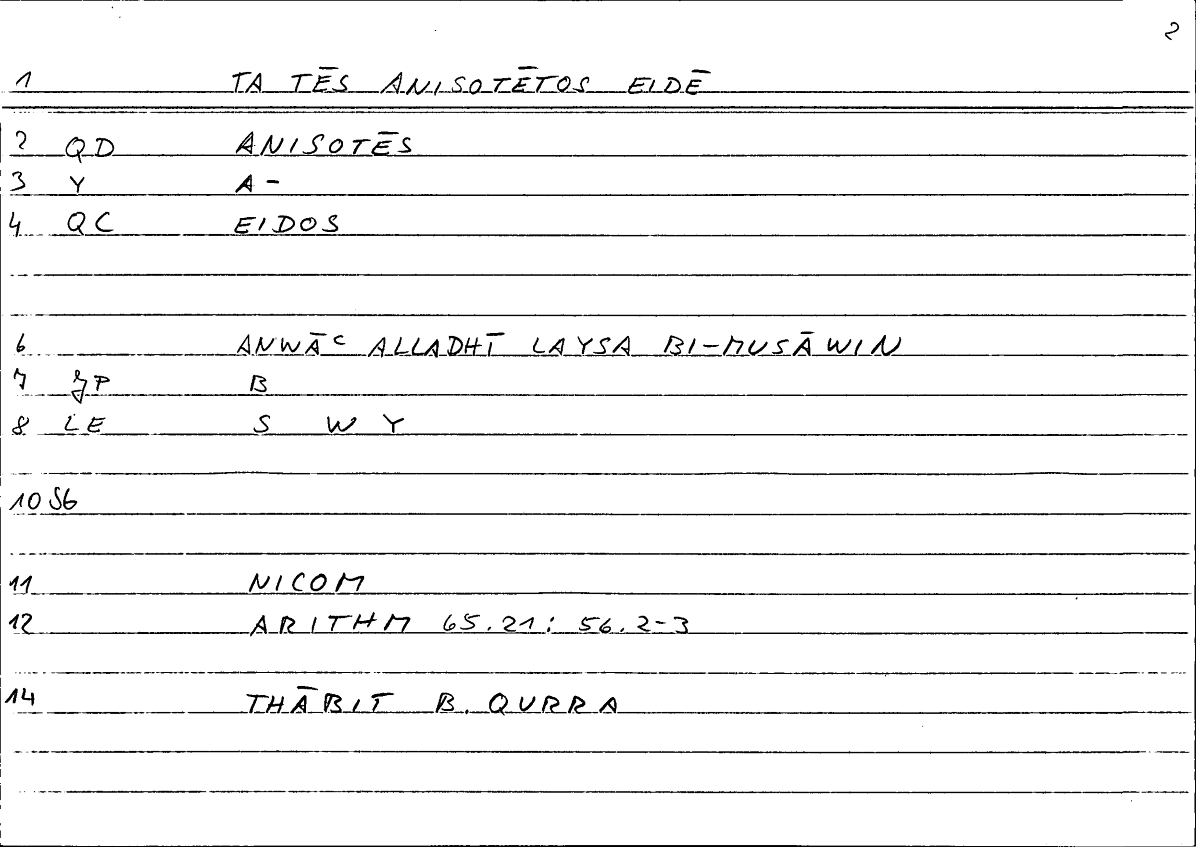 2
1 TA TĒS ANISOTĒTOS EIDĒ
2 QD ANISOTĒS
3 Y A-
4 QC EIDOS
6 ANWĀC ALLADHĪ LAYSA BI-MUSĀWIN
7 P B
8 LE S W Y
10 S6
11 NICOM
12 ARITHM 65.21: 56.2-3
14 THĀBIT B. QURRA